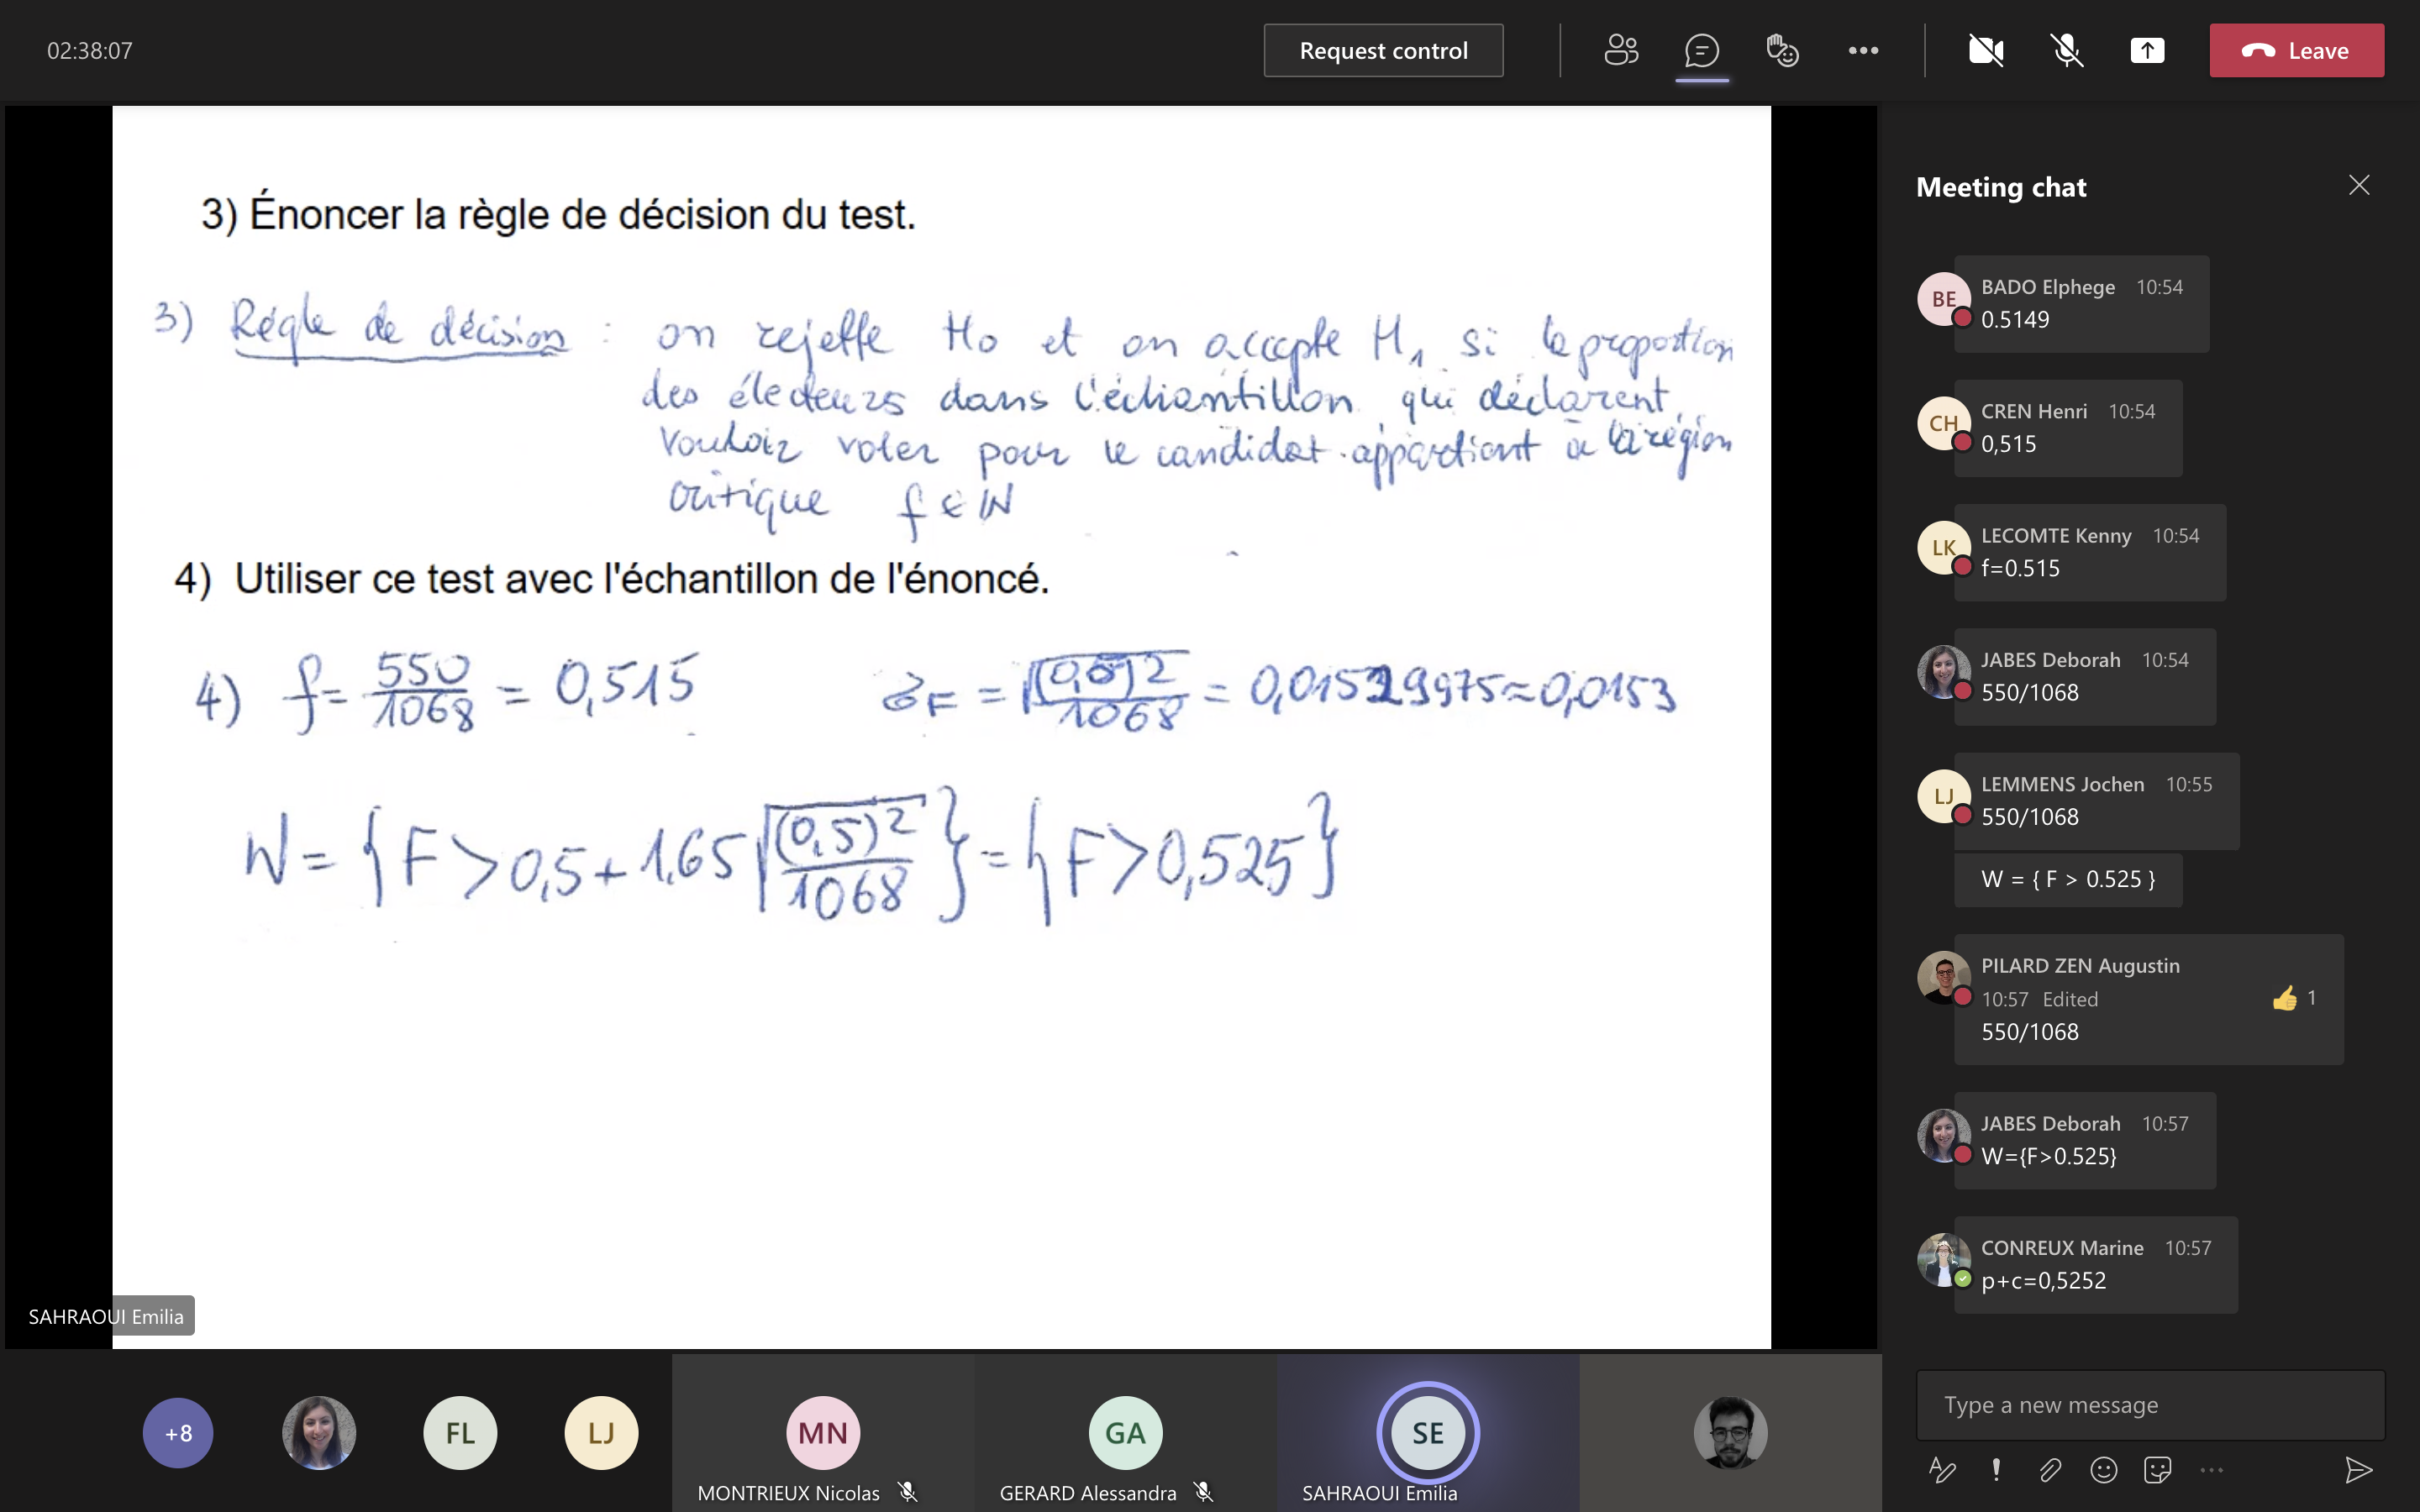 02:38:07
Request control
Leave
3) Énoncer la règle de décision du test.
3) Régle de décision : on rejette H0 et on accepte H1 si la proportion
des électeurs dans l'échantillon qui déclarent
vouloir voter pour le candidat appartient à la région
critique f ∈ W
4) Utiliser ce test avec l'échantillon de l'énoncé.
4) f = 550/1068 = 0,515 σF = √((0,5)2/1068) = 0,01529975 ≈ 0,0153
W = {F > 0,5 + 1,65 √((0,5)2/1068)} = {F > 0,525}
SAHRAOUI Emilia
Meeting chat
BE
BADO Elphege 10:54
0.5149
CH
CREN Henri 10:54
0,515
LK
LECOMTE Kenny 10:54
f=0.515
JABES Deborah 10:54
550/1068
LJ
LEMMENS Jochen 10:55
550/1068
W = { F > 0.525 }
PILARD ZEN Augustin
10:57 Edited
👍 1
550/1068
JABES Deborah 10:57
W={F>0.525}
CONREUX Marine 10:57
p+c=0,5252
Type a new message
+8
FL
LJ
MN
MONTRIEUX Nicolas
GA
GERARD Alessandra
SE
SAHRAOUI Emilia